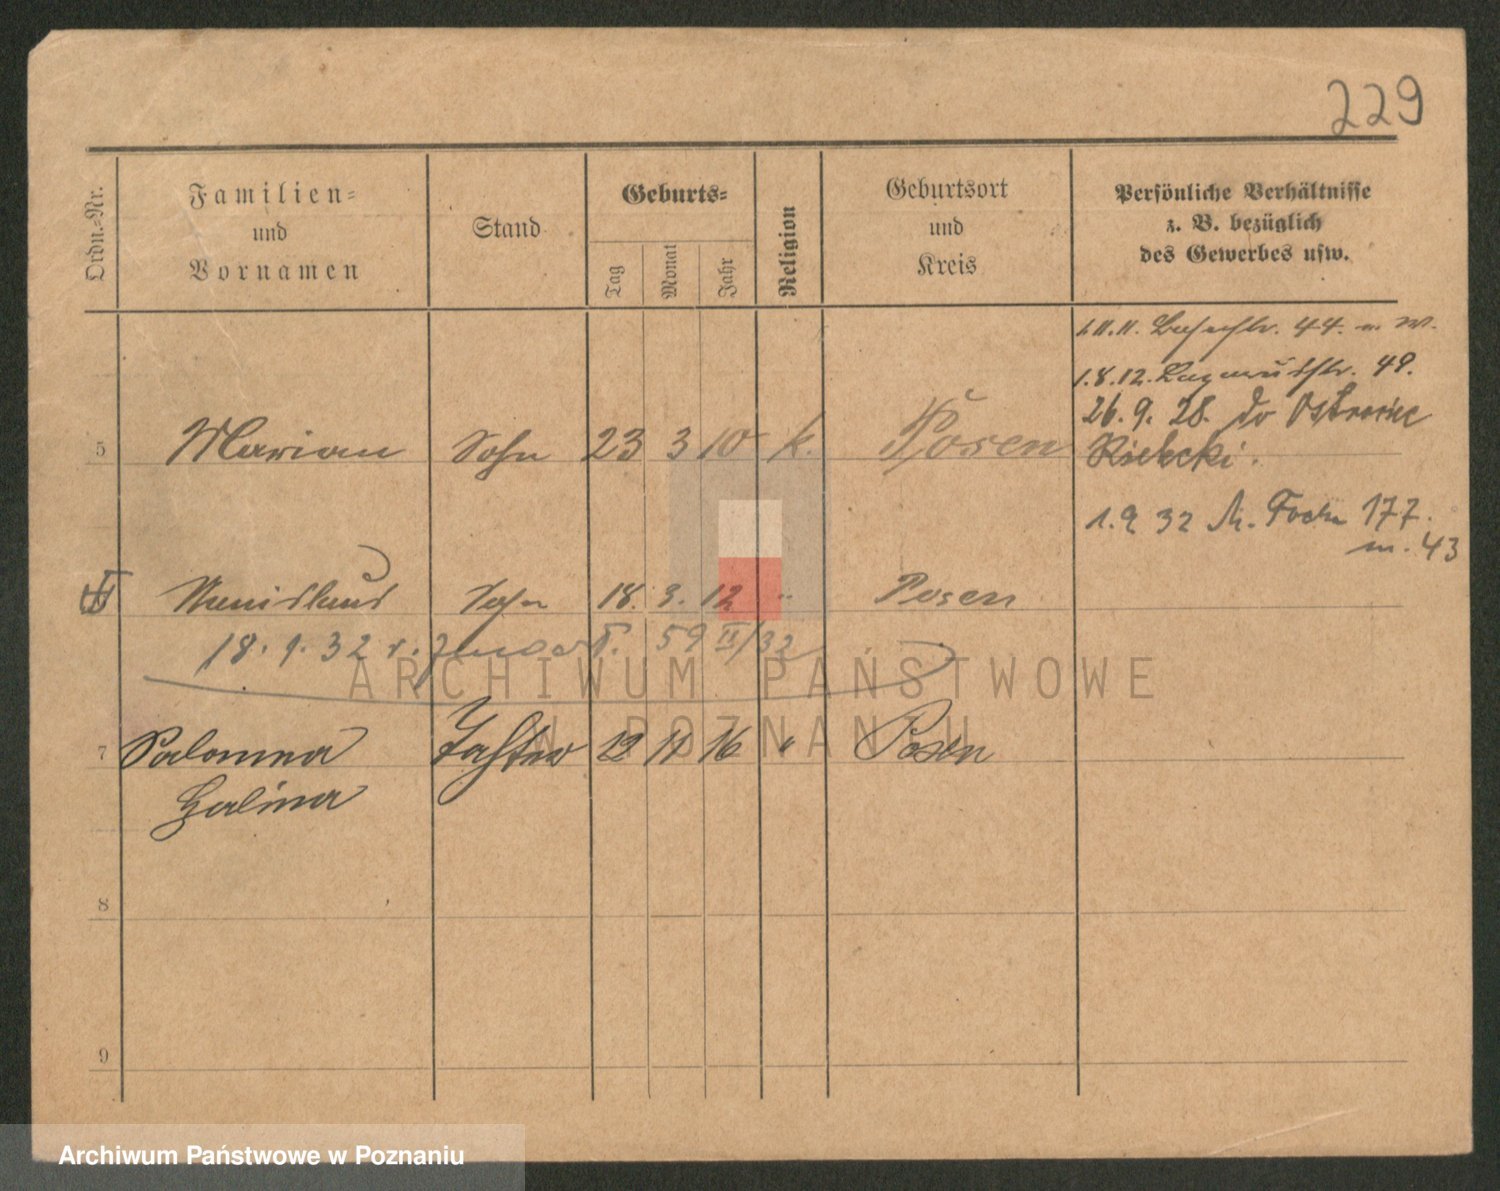 229
Ordn.-Nr.
Familien-
und
Vornamen
Stand
Geburts-
Tag
Monat
Jahr
Religion
Geburtsort
und
Kreis
Persönliche Verhältnisse
z. B. bezüglich
des Gewerbes usw.
1.11.11. 44.
1.8.12. 49.
26.9.28. do
5 Marian Sohn 23 3 10 k. Posen
1.9 32 M. Focha 177.
m. 43
Sohn 18. 3. 12 " Posen
18.9.32 59 II/32
7 Salomea Tochter 12 11 16 " Posen
Halina
8
9
ARCHIWUM PAŃSTWOWE
W POZNANIU
Archiwum Państwowe w Poznaniu